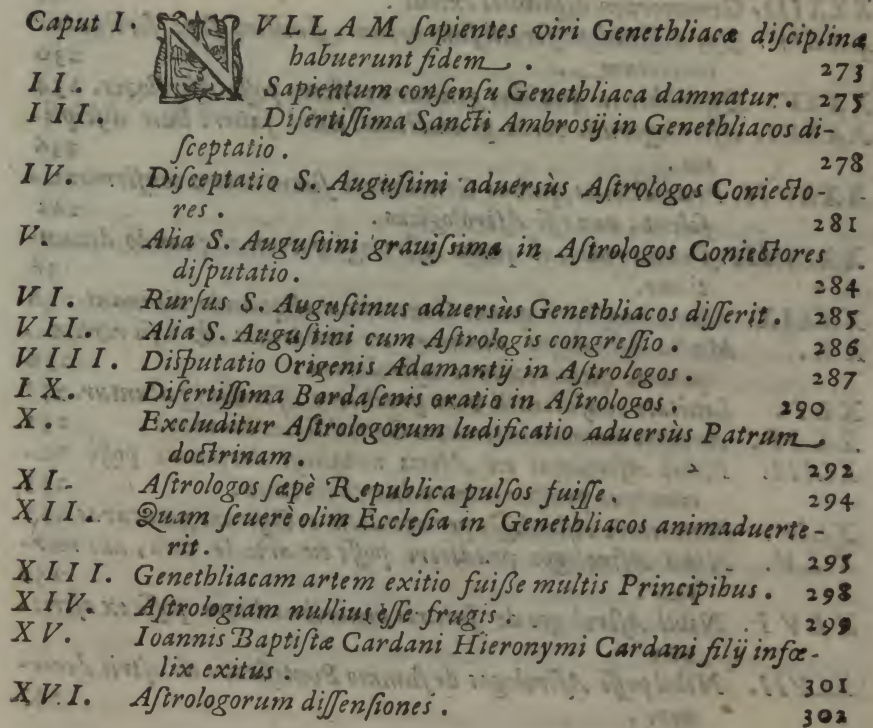 Caput I. NVLLAM ſapientes viri Genethliacæ diſciplinæ
habuerunt fidem. 273
II. Sapientum conſenſu Genethliaca damnatur. 275
III. Diſertiſſima Sancti Ambroſij in Genethliacos di-
ſceptatio. 278
IV. Diſceptatio S. Auguſtini aduersùs Aſtrologos Coniecto-
res. 281
V. Alia S. Auguſtini grauiſsima in Aſtrologos Coniectores
diſputatio. 284
VI. Rurſus S. Auguſtinus aduersùs Genethliacos diſſerit. 285
VII. Alia S. Auguſtini cum Aſtrologis congreſſio. 286
VIII. Diſputatio Origenis Adamantij in Aſtrologos. 287
IX. Diſertiſſima Bardaſenis oratio in Aſtrologos. 290
X. Excluditur Aſtrologorum ludificatio aduersùs Patrum
doctrinam. 292
XI. Aſtrologos ſæpè Republica pulſos fuiſſe. 294
XII. Quam ſeuerè olim Eccleſia in Genethliacos animaduerte-
rit. 295
XIII. Genethliacam artem exitio fuiſſe multis Principibus. 298
XIV. Aſtrologiam nullius eſſe frugis. 299
XV. Ioannis Baptiſtæ Cardani Hieronymi Cardani filij infœ-
lix exitus. 301
XVI. Aſtrologorum diſſenſiones. 302